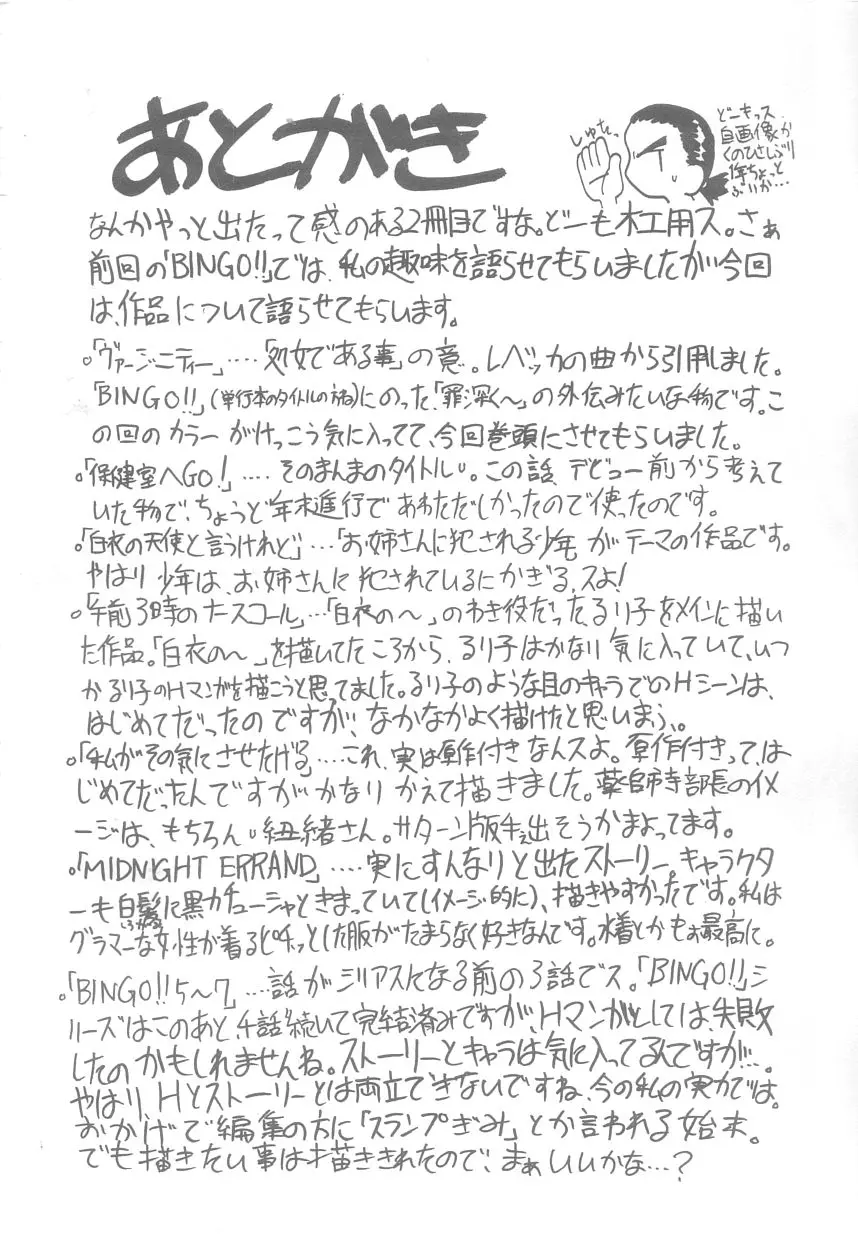 あとがき
しゅたっ
どーもっス。
自画像か
くのひさしぶり
1年ちょっと
ぶりか…
なんかやっと出たって感のある2冊目ですな。どーも木工用ス。さぁ
前回の「BINGO!!」では、私の趣味を語らせてもらいましたが今回
は、作品について語らせてもらいます。
。「ヴァージニティー」‥‥「処女である事」の意。レベッカの曲から引用しました。
「BINGO!!」(単行本のタイトルの方ね)にのった「罪深く～」の外伝みたいな物です。こ
の回のカラーがけっこう気に入ってて、今回巻頭にさせてもらいました。
。「保健室へGO!」‥‥そのまんまのタイトル。この話、デビュー前から考えて
いた物で、ちょうど年末進行であわただしかったので使ったのです。
。「午前3時のナースコール」…「白衣の～」のわき役だったるり子をメインに描い
た作品。「白衣の～」を描いてたころから、るり子はかなり気に入っていて、いつ
かるり子のHマンガを描こうと思ってました。るり子のような目のキャラでのHシーンは、
はじめてだったのですが、なかなかよく描けたと思いまふ。
。「私がその気にさせたげる」‥‥これ、実は原作付きなんスよ。原作付きっては
じめてだったんですがかなりかえて描きました。薬師寺部長のイメ
ージは、もちろん紐緒さん。サターン版手ぇ出そうかまよってます。
。「MIDNIGHT ERRAND」‥‥実にすんなりと出たストーリー。キャラクタ
ーも白髪に黒カチューシャときまっていて(イメージ的に)、描きやすかったです。私は
グラマーな女性が着るピチっとした服がたまらなく好きなんです。水着とかもぉ最高に。
。「BINGO!! 5～7」‥‥話がシリアスになる前の3話でス。「BINGO!!」シ
リーズはこのあと4話続いて完結済みですが、Hマンガとしては、失敗
したのかもしれませんね。ストーリーとキャラは気に入ってるんですが…。
やはりHとストーリーとは両立できないですね、今の私の実力では。
おかげで編集の方に「スランプぎみ」とか言われる始末。
でも描きたい事は描ききれたので、まぁいいかな…?